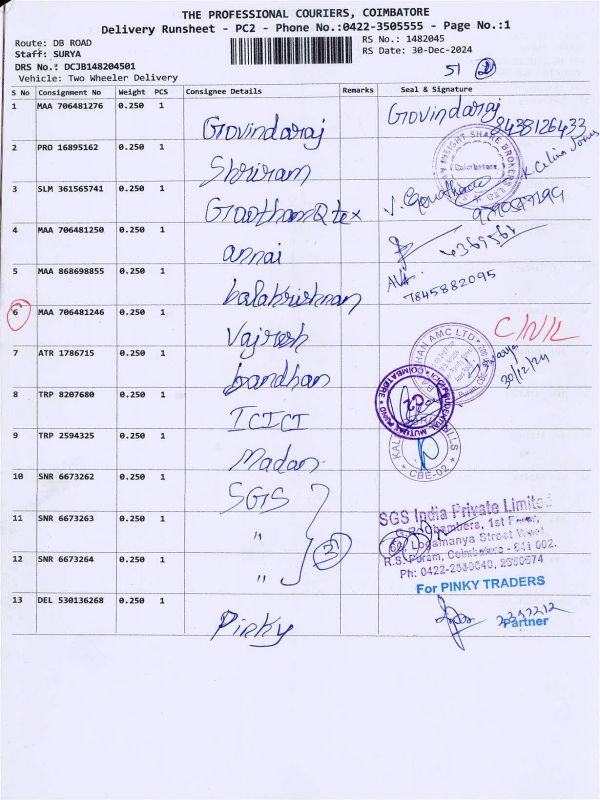 THE PROFESSIONAL COURIERS, COIMBATORE
Delivery Runsheet - PC2 - Phone No.:0422-3505555 - Page No.:1
Route: DB ROAD RS No.: 1482045
Staff: SURYA RS Date: 30-Dec-2024
DRS No.: DCJB148204501
Vehicle: Two Wheeler Delivery
S No Consignment No Weight PCS Consignee Details Remarks Seal & Signature
1 MAA 706481276 0.250 1 Govindaraj Govindaraj
8438126433
2 PRO 16895162 0.250 1 Shriram
INSIGHT SHARE BROKERS
Coimbatore
3 SLM 361565741 0.250 1 Gowtham
4 MAA 706481250 0.250 1 annai
5 MAA 868698855 0.250 1 balakrishnan
7845882095
6 MAA 706481246 0.250 1 Vajresh
7 ATR 1786715 0.250 1 bandhan
30/12/24
8 TRP 8207680 0.250 1 ICICI
9 TRP 2594325 0.250 1 Madan
CBE-02
10 SNR 6673262 0.250 1 SGS
11 SNR 6673263 0.250 1 "
SGS India Private Limited
1st Floor,
R.S. Puram, Coimbatore - 641 002.
12 SNR 6673264 0.250 1 "
For PINKY TRADERS
13 DEL 530136268 0.250 1 Pinky
Partner